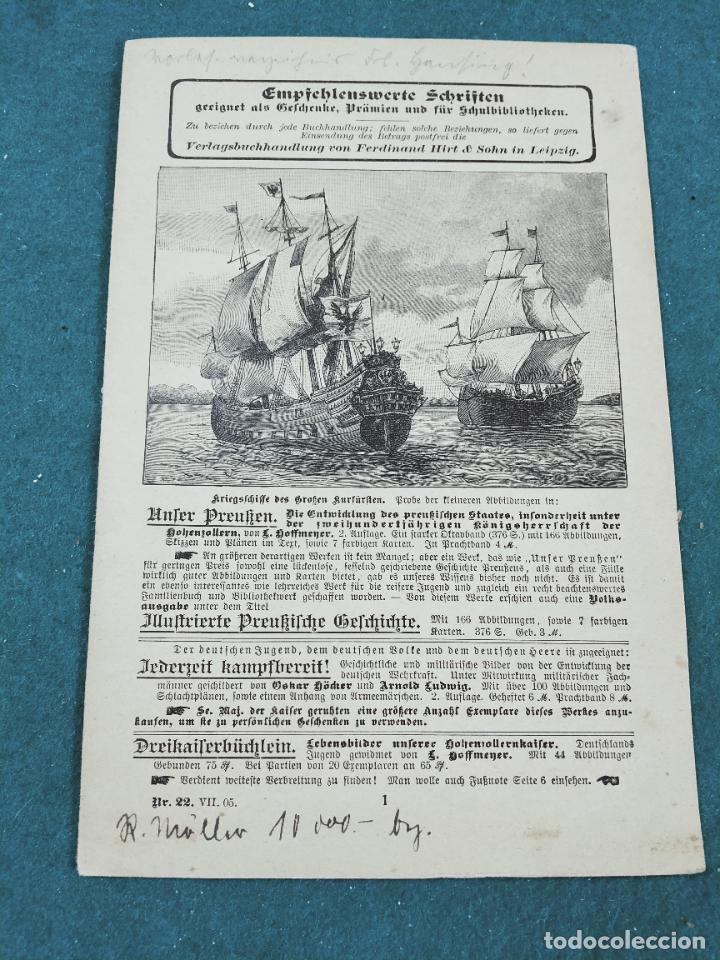 Empfehlenswerte Schriften
geeignet als Geschenke, Prämien und für Schulbibliotheken.
Zu beziehen durch jede Buchhandlung; fehlen solche Beziehungen, so liefert gegen
Einsendung des Betrags postfrei die
Verlagsbuchhandlung von Ferdinand Hirt & Sohn in Leipzig.
Kriegsschiffe des Großen Kurfürsten. Probe der kleineren Abbildungen in:
Unser Preußen. Die Entwicklung des preußischen Staates, insonderheit unter
der zweihundertjährigen Königsherrschaft der
Hohenzollern, von L. Hoffmeyer. 2. Auflage. Ein starker Oktavband (376 S.) mit 166 Abbildungen,
Skizzen und Plänen im Text, sowie 7 farbigen Karten. In Prachtband 4 ℳ.
☛ An größeren derartigen Werken ist kein Mangel; aber ein Werk, das wie „Unser Preußen“
für geringen Preis sowohl eine lückenlose, fesselnd geschriebene Geschichte Preußens, als auch eine Fülle
wirklich guter Abbildungen und Karten bietet, gab es unseres Wissens bisher noch nicht. Es ist damit
ein ebenso interessantes wie lehrreiches Werk für die reifere Jugend und zugleich ein recht beachtenswertes
Familienbuch und Bibliothekwerk geschaffen worden. — Von diesem Werke erschien auch eine Volks-
ausgabe unter dem Titel
Illustrierte Preußische Geschichte. Mit 166 Abbildungen, sowie 7 farbigen
Karten. 376 S. Geb. 3 ℳ.
Der deutschen Jugend, dem deutschen Volke und dem deutschen Heere ist zugeeignet:
Jederzeit kampfbereit! Geschichtliche und militärische Bilder von der Entwicklung der
deutschen Wehrkraft. Unter Mitwirkung militärischer Fach-
männer geschildert von Oskar Höcker und Arnold Ludwig. Mit über 100 Abbildungen und
Schlachtplänen, sowie einem Anhang von Armeemärschen. 2. Auflage. Geheftet 6 ℳ. Prachtband 8 ℳ.
☛ Se. Maj. der Kaiser geruhten eine größere Anzahl Exemplare dieses Werkes anzu-
kaufen, um sie zu persönlichen Geschenken zu verwenden.
Dreikaiserbüchlein. Lebensbilder unserer Hohenzollernkaiser. Deutschlands
Jugend gewidmet von L. Hoffmeyer. Mit 44 Abbildungen
Gebunden 75 ₰. Bei Partien von 20 Exemplaren an 65 ₰.
☛ Verdient weiteste Verbreitung zu finden! Man wolle auch Fußnote Seite 6 einsehen. ☚
Nr. 22. VII. 05. 1
R. Möller 10 000.-
todocoleccion
todocoleccion.net